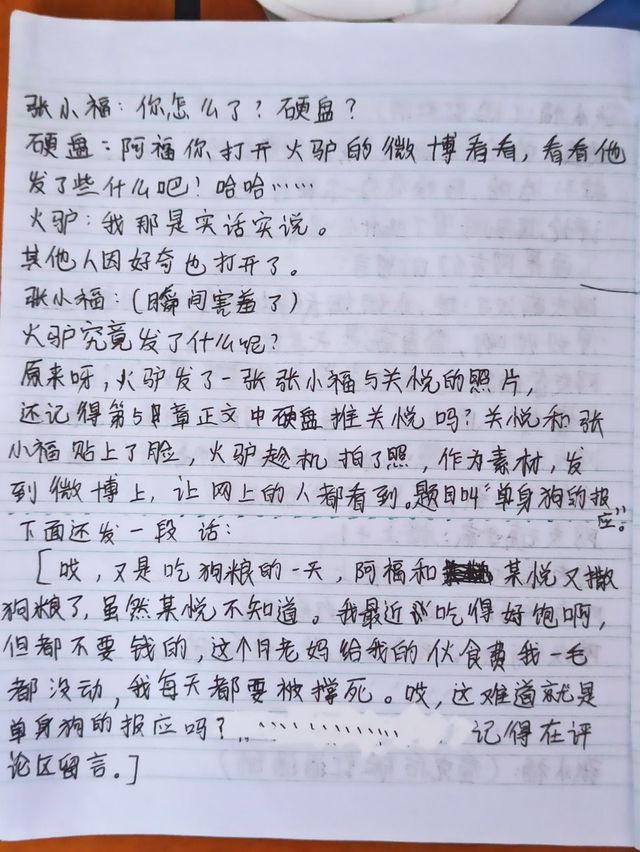 张小福：你怎么了？硬盘？
硬盘：阿福你打开火驴的微博看看，看看他
发了些什么吧！哈哈……
火驴：我那是实话实说。
其他人因好奇也打开了。
张小福：（瞬间害羞了）
火驴究竟发了什么呢？
原来呀，火驴发了一张张小福与关悦的照片，
还记得第5章正文中硬盘推关悦吗？关悦和张
小福贴上了脸，火驴趁机拍了照，作为素材，发
到微博上，让网上的人都看到。题目叫“单身狗的报应”。
下面还发一段话：
［哎，又是吃狗粮的一天，阿福和某悦又撒
狗粮了，虽然某悦不知道。我最近吃得好饱啊，
但都不要钱的，这个月老妈给我的伙食费我一毛
都没动，我每天都要被撑死。哎，这难道就是
单身狗的报应吗？…………记得在评
论区留言。］